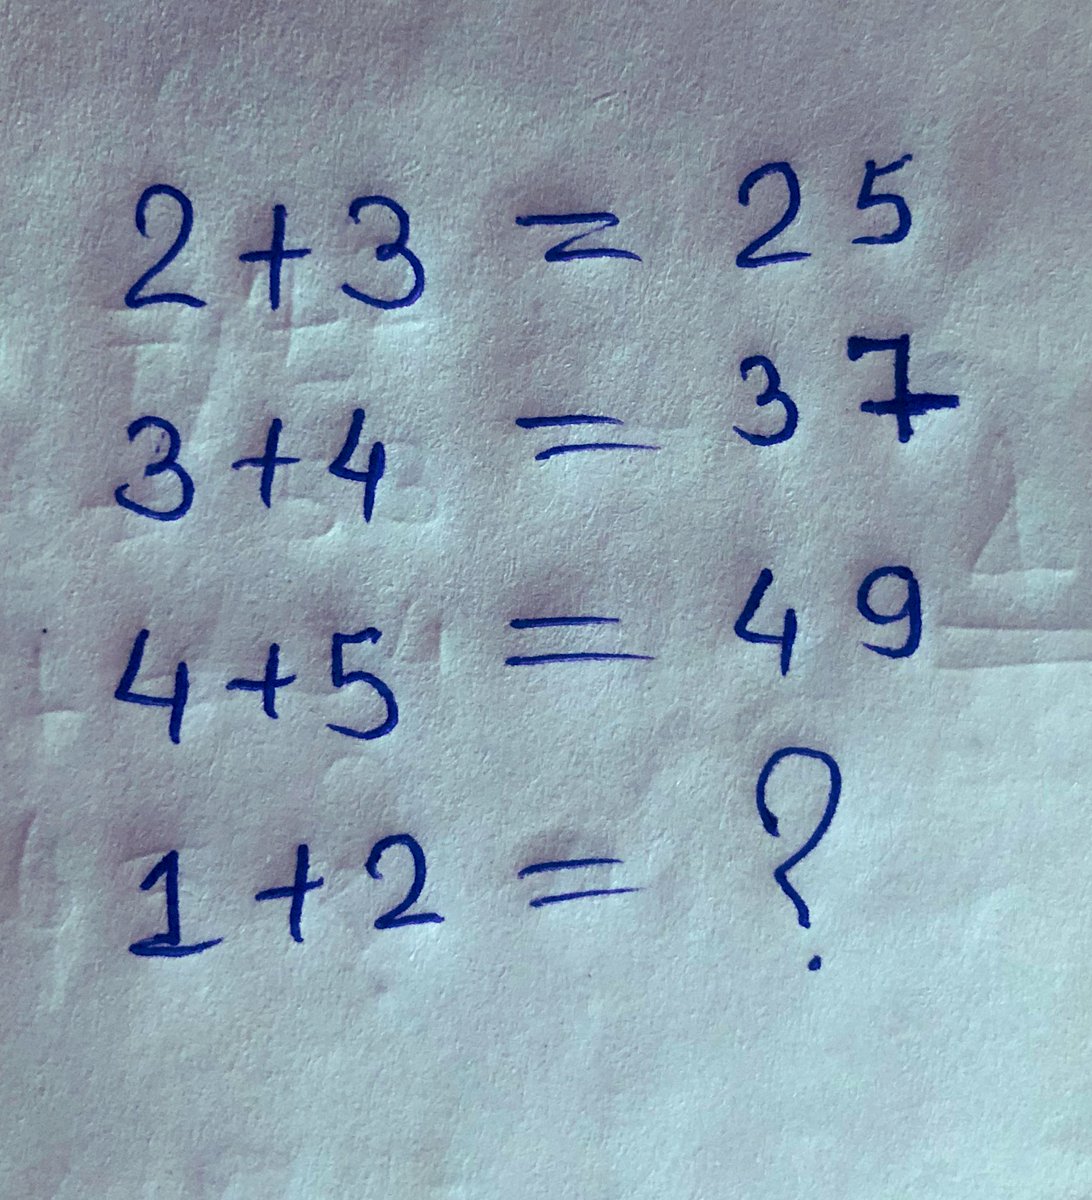 2+3 = 25
3+4 = 37
4+5 = 49
1+2 = ?